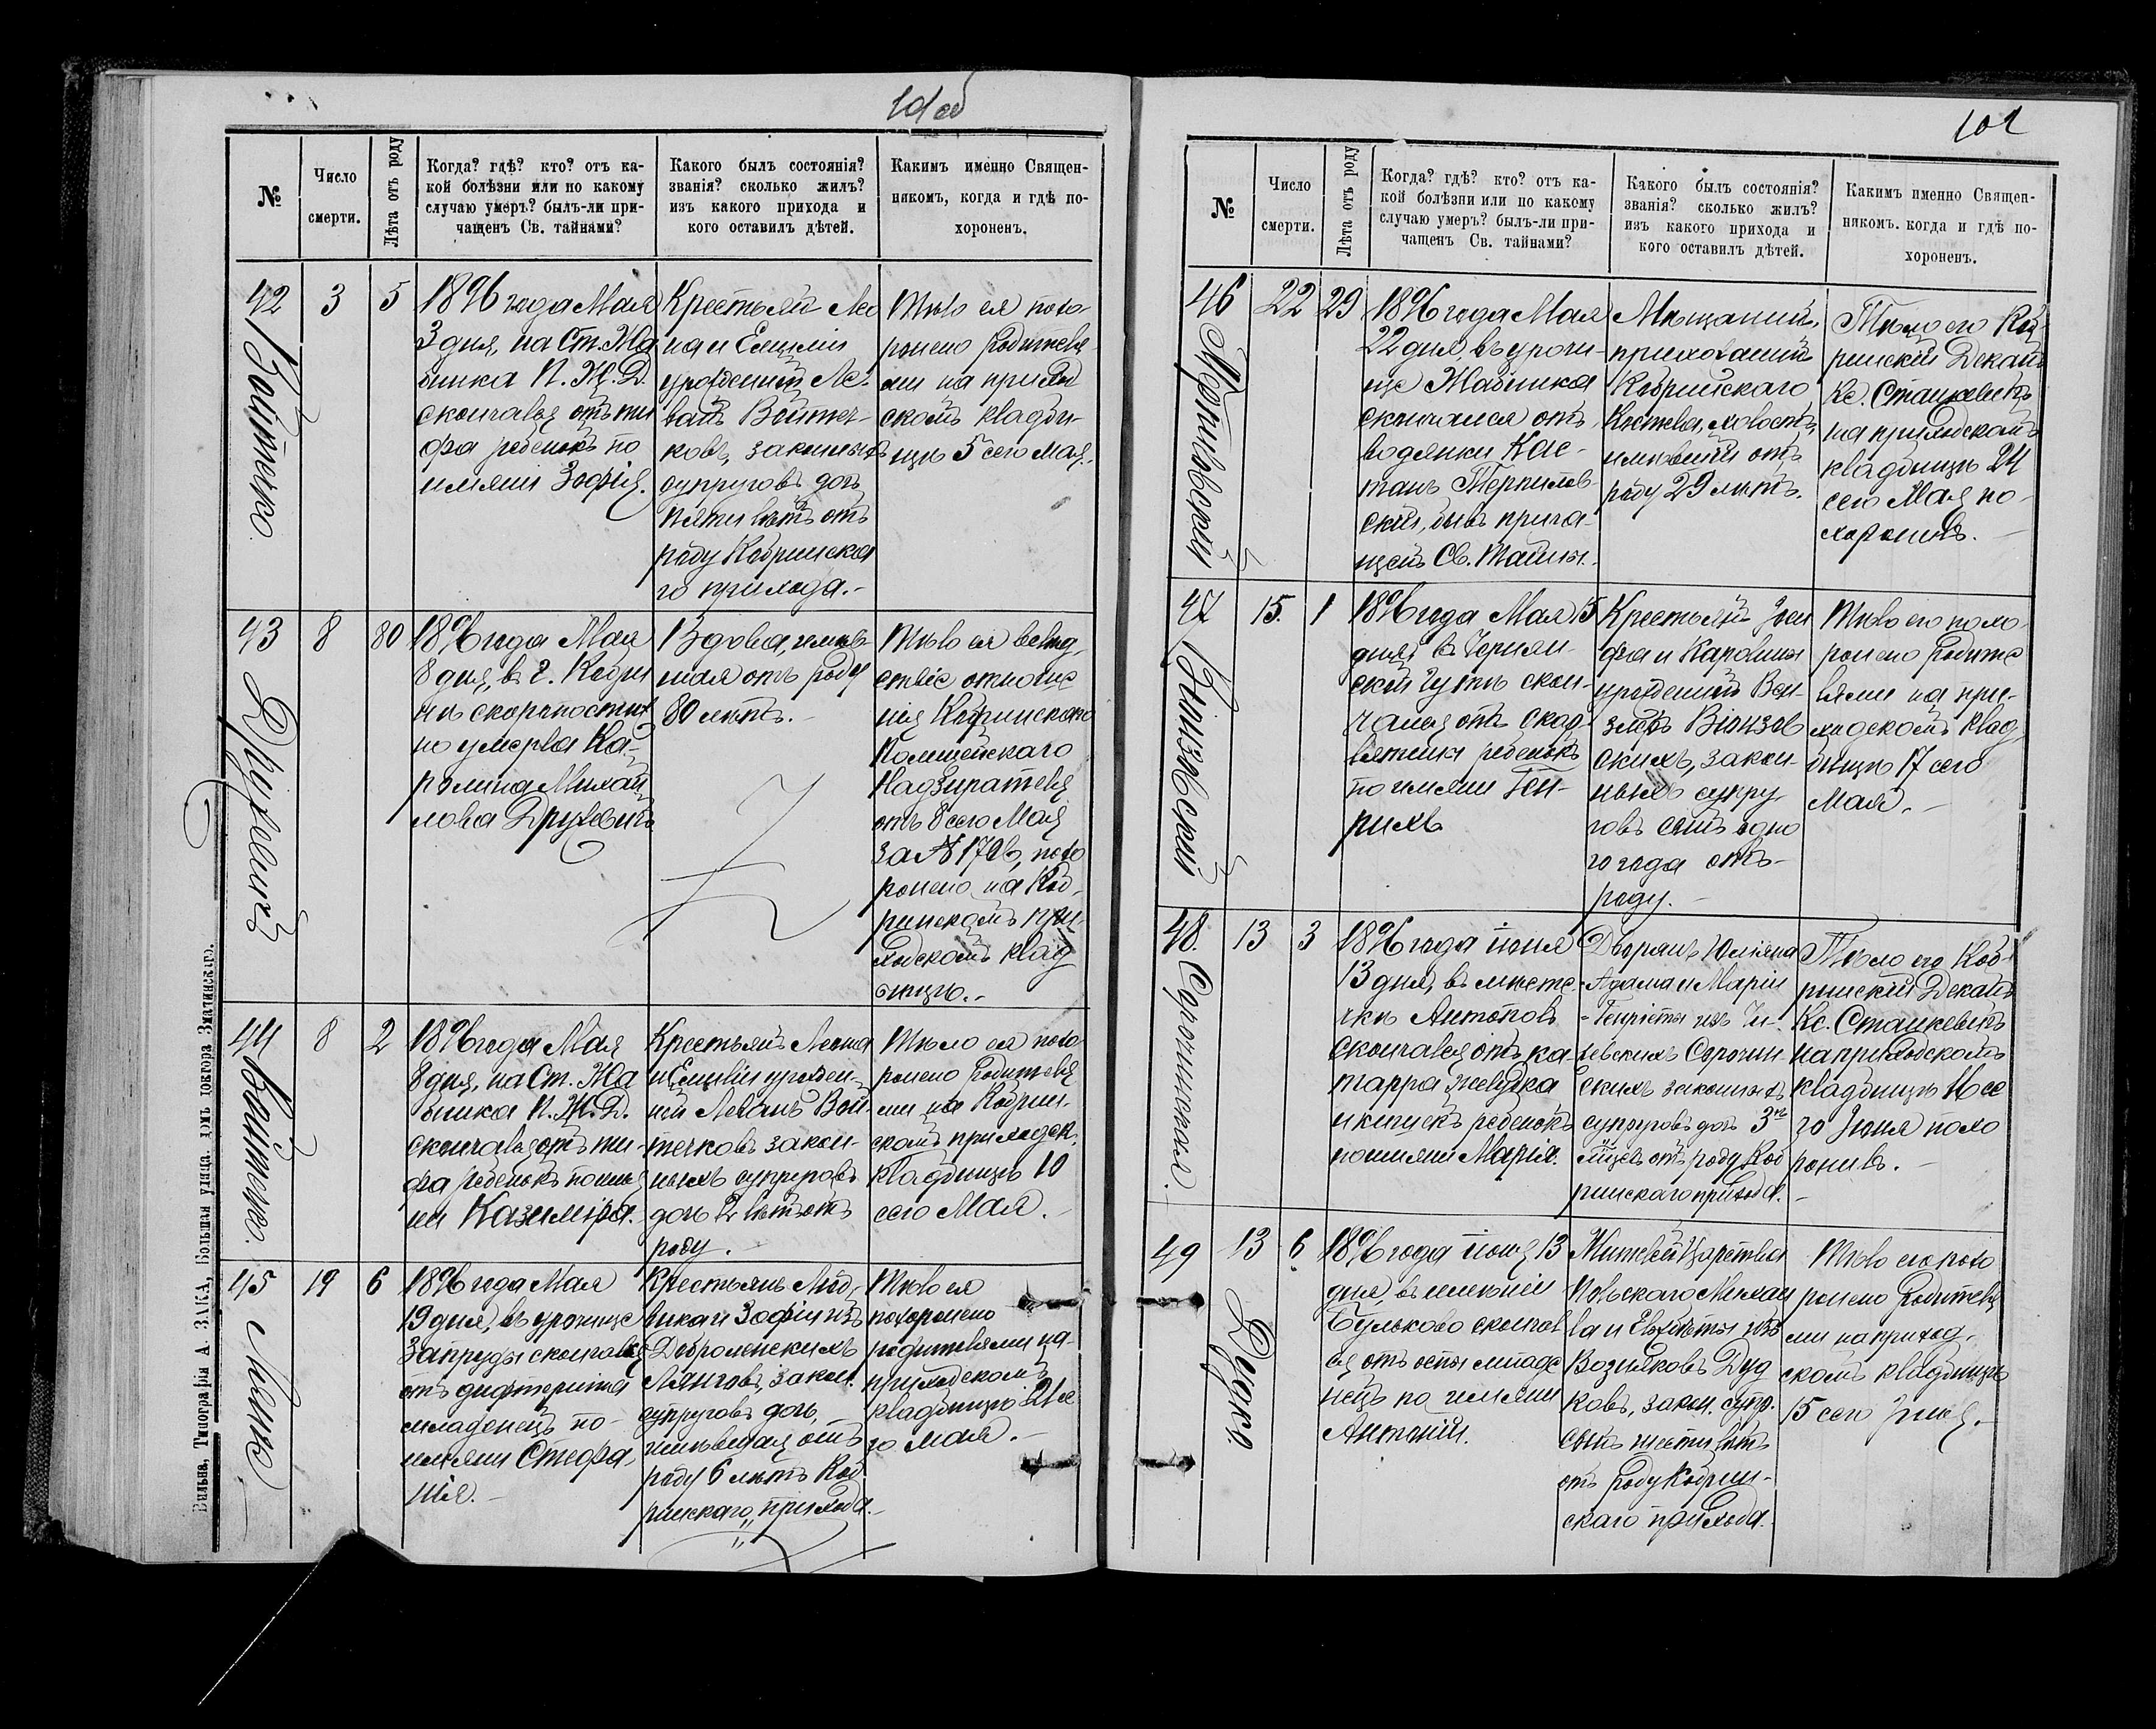 101 об
№
Число
смерти.
Лѣта отъ роду
Когда? гдѣ? кто? отъ ка-
кой болѣзни или по какому
случаю умеръ? былъ-ли при-
чащенъ Св. тайнами?
Какого былъ состоянія?
званія? сколько жилъ?
изъ какого прихода и
кого оставилъ дѣтей.
Какимъ именно Священ-
никомъ, когда и гдѣ по-
хороненъ.
42
Войтечко
3
5
1896 года Мая
3 дня, на Ст. Жа
бинка П. Ж. Д.
скончалась отъ ти
фа ребенокъ по
имени Зофія.
Крестьянъ Лео
на и Емиліи
урожденной Ле-
ванъ Войтеч-
ковъ, законныхъ
супруговъ дочь
пяти лѣтъ отъ
роду Кобринска
го прихода.-
Тѣло ея похо-
ронено родителя-
ми на приход
скомъ кладби-
щѣ 5 сего мая.
43
Друкевичъ
8
80
1896 года Мая
8 дня, въ г. Кобри
нѣ скоропостиж
но умерла Ка-
ролина Михай
лова Друкевичъ
Вдова, имѣв
шая отъ роду
80 лѣтъ.-
Тѣло ея вслѣд
ствіе отноше
нія Кобринскаго
Полицейскаго
Надзирателя
отъ 8 сего Мая
за № 1706, похо
ронено на Коб-
ринскомъ при-
ходскомъ клад
бищѣ.-
44
Войтечко.
8
2
1896 года Мая
8 дня, на Ст. Жа
бинка П. Ж. Д.
скончалась отъ ти-
фа ребенокъ по име
ни Казиміра.
Крестьянъ Леона
и Емиліи урожден-
ной Леванъ Вой-
течковъ закон-
ныхъ супруговъ
дочь 2 лѣтъ отъ
роду.-
Тѣло ея похо
ронено родителя
ми на Кобрин-
скомъ приходск.
кладбищѣ 10
сего Мая.-
45
19
6
1896 года Мая
19 дня, въ урочище
Запруды скончалась
отъ дифтерита
младенецъ по-
имени Стефа-
нія.-
Крестьянъ Люд-
вика и Зофіи изъ
супруговъ дочь,
имѣвшая отъ
роду 6 лѣтъ Коб
ринскаго прихода.-
Тѣло ея
похоронено
родителями на-
приходскомъ
кладбищѣ 21 се
го мая.-
Вильна, Типографія А. Г. Большая улица, домъ доктора
102
№
Число
смерти.
Лѣта отъ роду
Когда? гдѣ? кто? отъ ка-
кой болѣзни или по какому
случаю умеръ? былъ-ли при-
чащенъ Св. тайнами?
Какого былъ состоянія?
званія? сколько жилъ?
изъ какого прихода и
кого оставилъ дѣтей.
Какимъ именно Священ-
никомъ. когда и гдѣ по-
хороненъ.
46
22
29
1896 года Мая
22 дня, въ урочи-
ще Жабинка
скончался отъ
водянки Кае-
танъ
скій, бывъ прича-
щенъ Св. Тайны.
Мѣщанинъ,
прихожанинъ
Кобринскаго
Костела, холостъ,
имѣвшій отъ
роду 29 лѣтъ.
Тѣло его Коб-
ринскій Деканъ
Кс. Станкевичъ
на приходскомъ
кладбищѣ 24
сего Мая по-
хоронилъ.-
47
15.
1
1896 года Мая 15
дня, въ Чернян-
ской Гутѣ скон-
чался отъ скар-
латины ребенокъ
по имени Ген-
рихъ
Крестьянъ Іоси
фа и Каролины
урожденной Вен-
ныхъ супру-
говъ сынъ одно
го года отъ-
роду.-
Тѣло его похо-
ронено родите
лями на при-
ходскомъ клад
бищѣ 17 сего
Мая.-
48.
13
3
1896 года іюня
13 дня, въ мѣсте-
чкѣ Антополь
скончалась отъ ка-
тарра желудка
и кишекъ ребенокъ
по имени Марія.
Дворянъ Юліяна
-Адама и Маріи
скихъ законныхъ
супруговъ дочь 3-хъ
мѣсяц. отъ роду Коб
ринскаго прихода.-
Тѣло его Коб-
ринскій Деканъ
Кс. Станкевичъ
на приходскомъ
кладбищѣ 16 се
го Іюня похо
ронилъ.-
49
Дудко.
13
6
1896 года іюня 13
дня, въ имѣніи
Бульково скончал
ся отъ оспы младе
нецъ по имени
Антоній.
Жителей Царства
Польскаго Михаи
ла и Елизаветы изъ
Возняковъ Дуд
ковъ, закон. супр.
сынъ шести лѣтъ
отъ роду Кобрин-
скаго прихода.
Тѣло его похо
ронено родителя
ми на приход-
скомъ кладбищѣ
15 сего Іюня.-